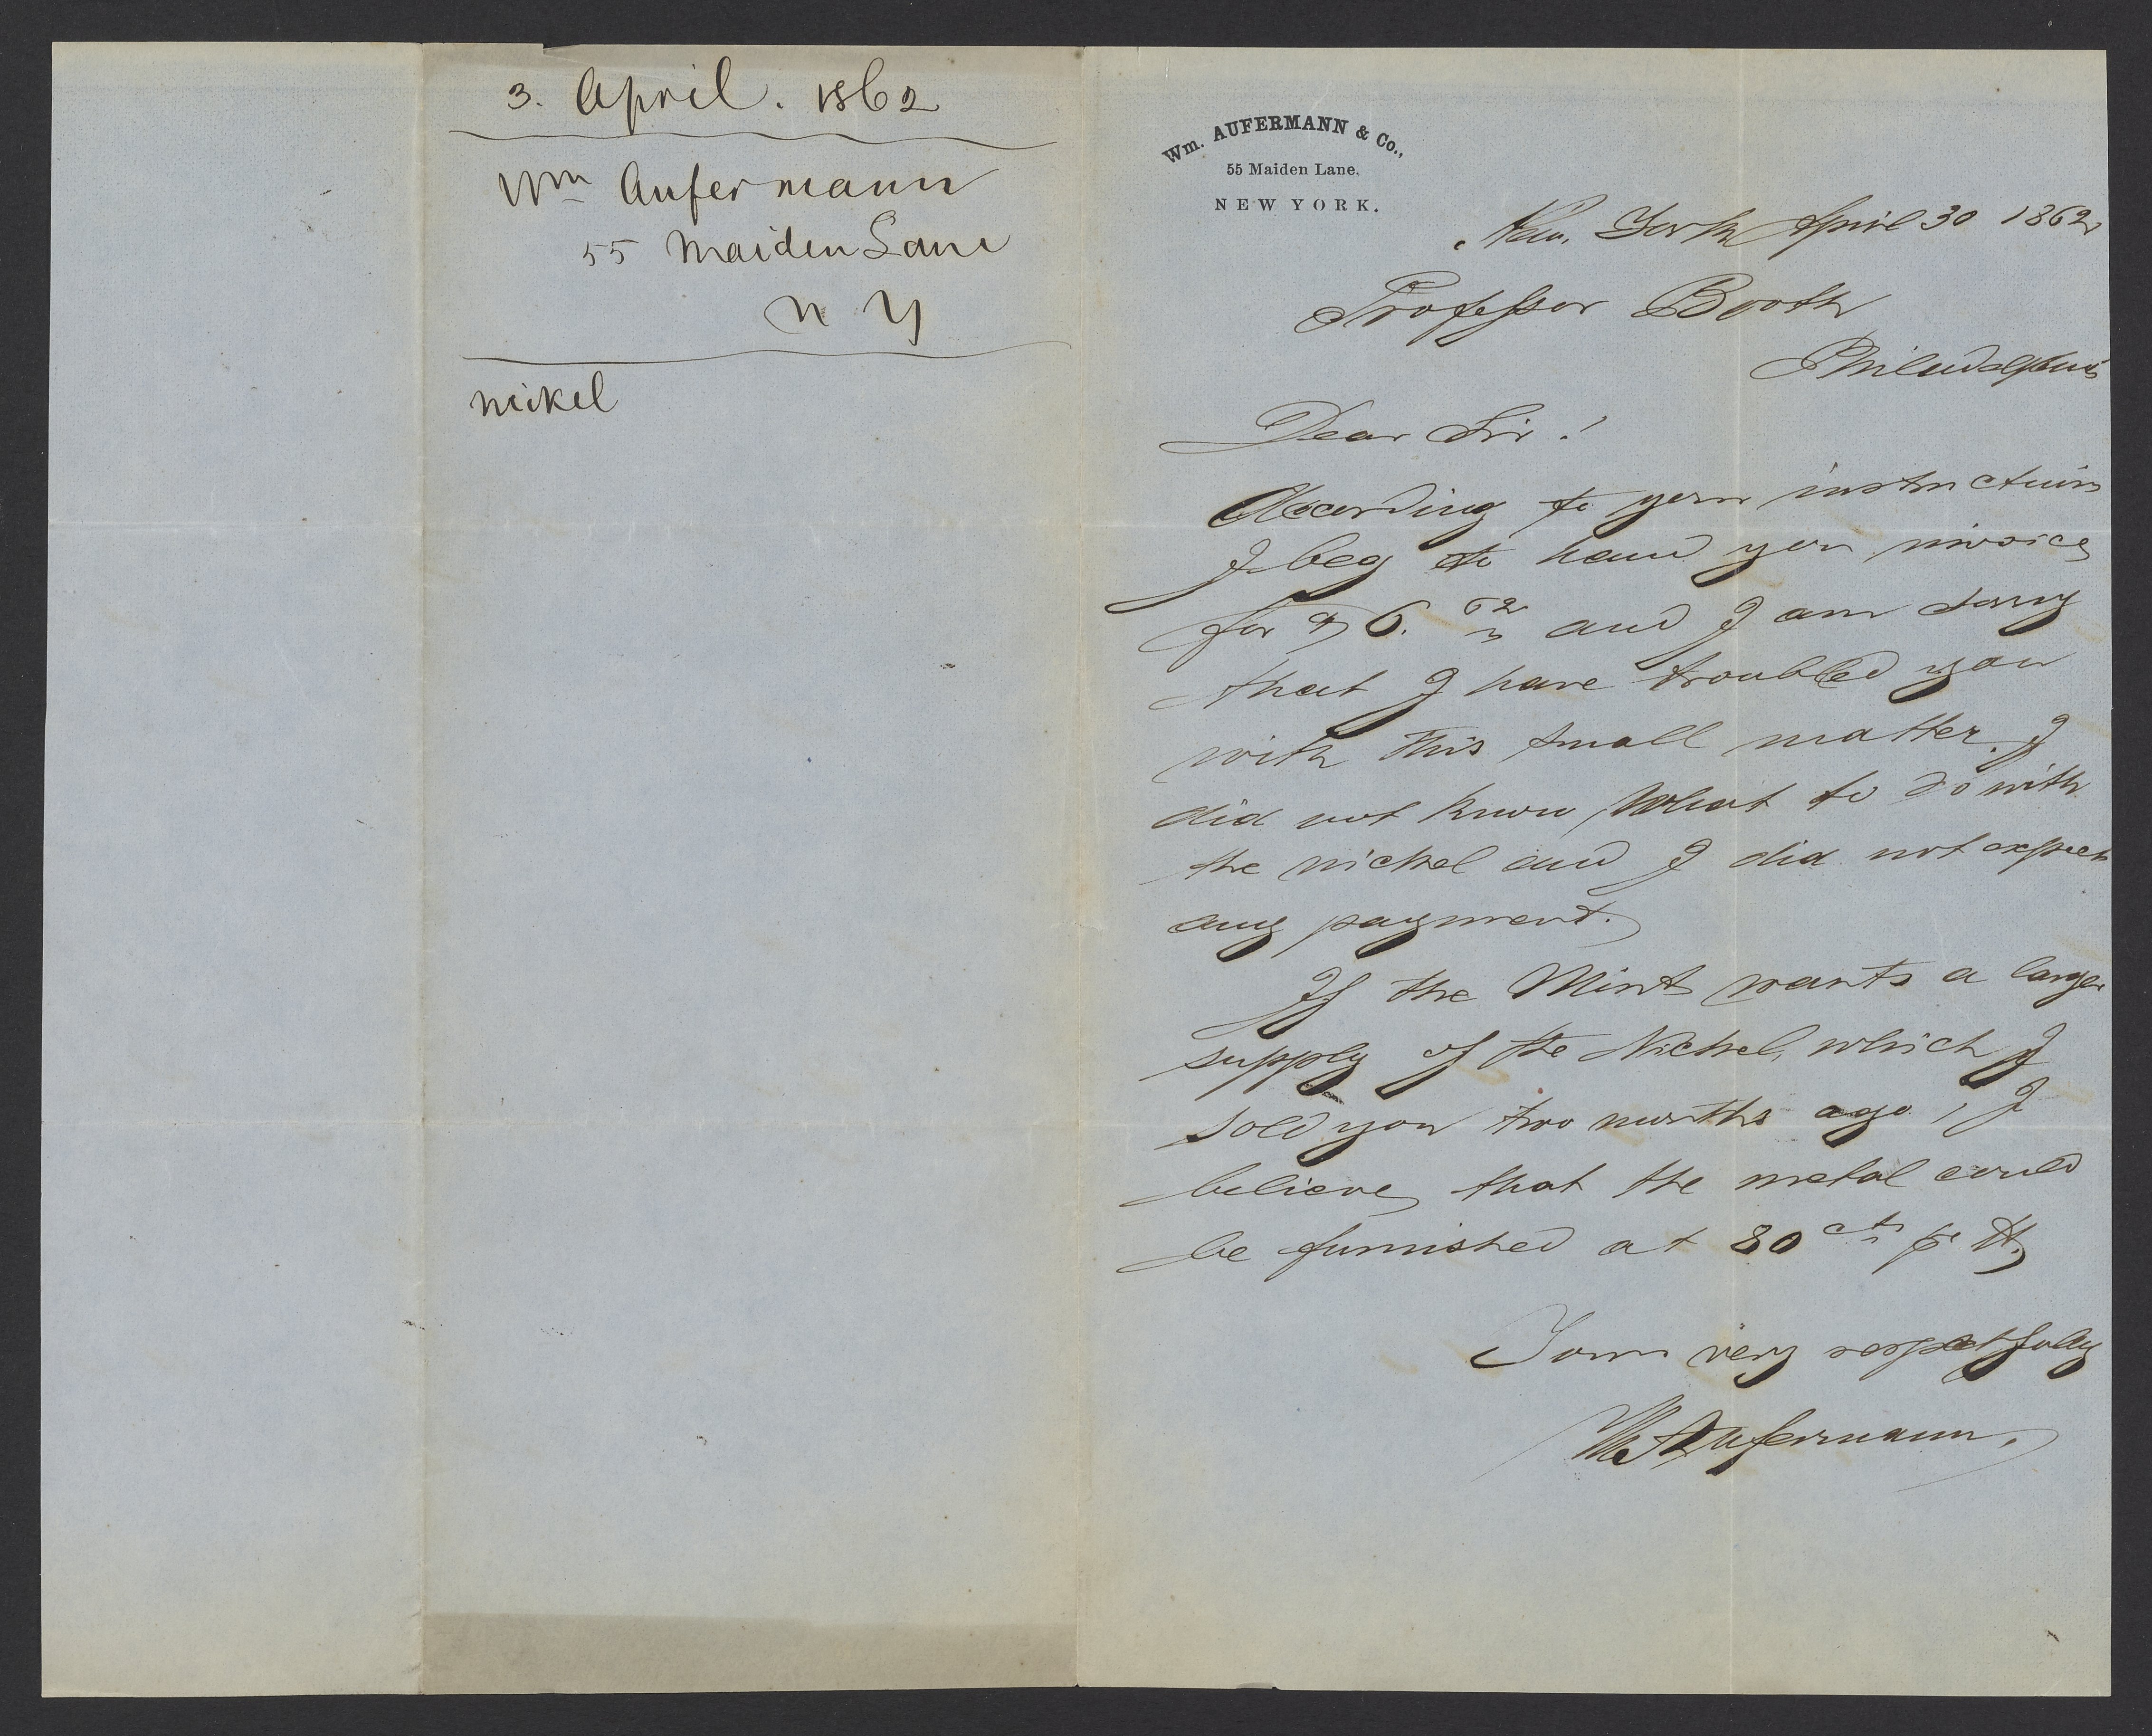 3. April. 1862
Wm Aufermann
55 Maiden Lane
N Y
nikel
Wm. AUFERMANN & Co.,
55 Maiden Lane.
NEW YORK.
New York April 30 1862
Professor Booth
Philadelphia
Dear Sir!
According to your instructions
I beg to hand you invoice
for $6. 62 and I am sorry
that I have troubled you
with this small matter. I
did not know what to do with
the nickel and I did not expect
any payment.
If the Mint wants a larger
supply of the Nickel, which I
sold you two months ago, I
believe, that the metal could
be furnished at 80 cts pr lb
Yours very respectfully
Wm Aufermann.